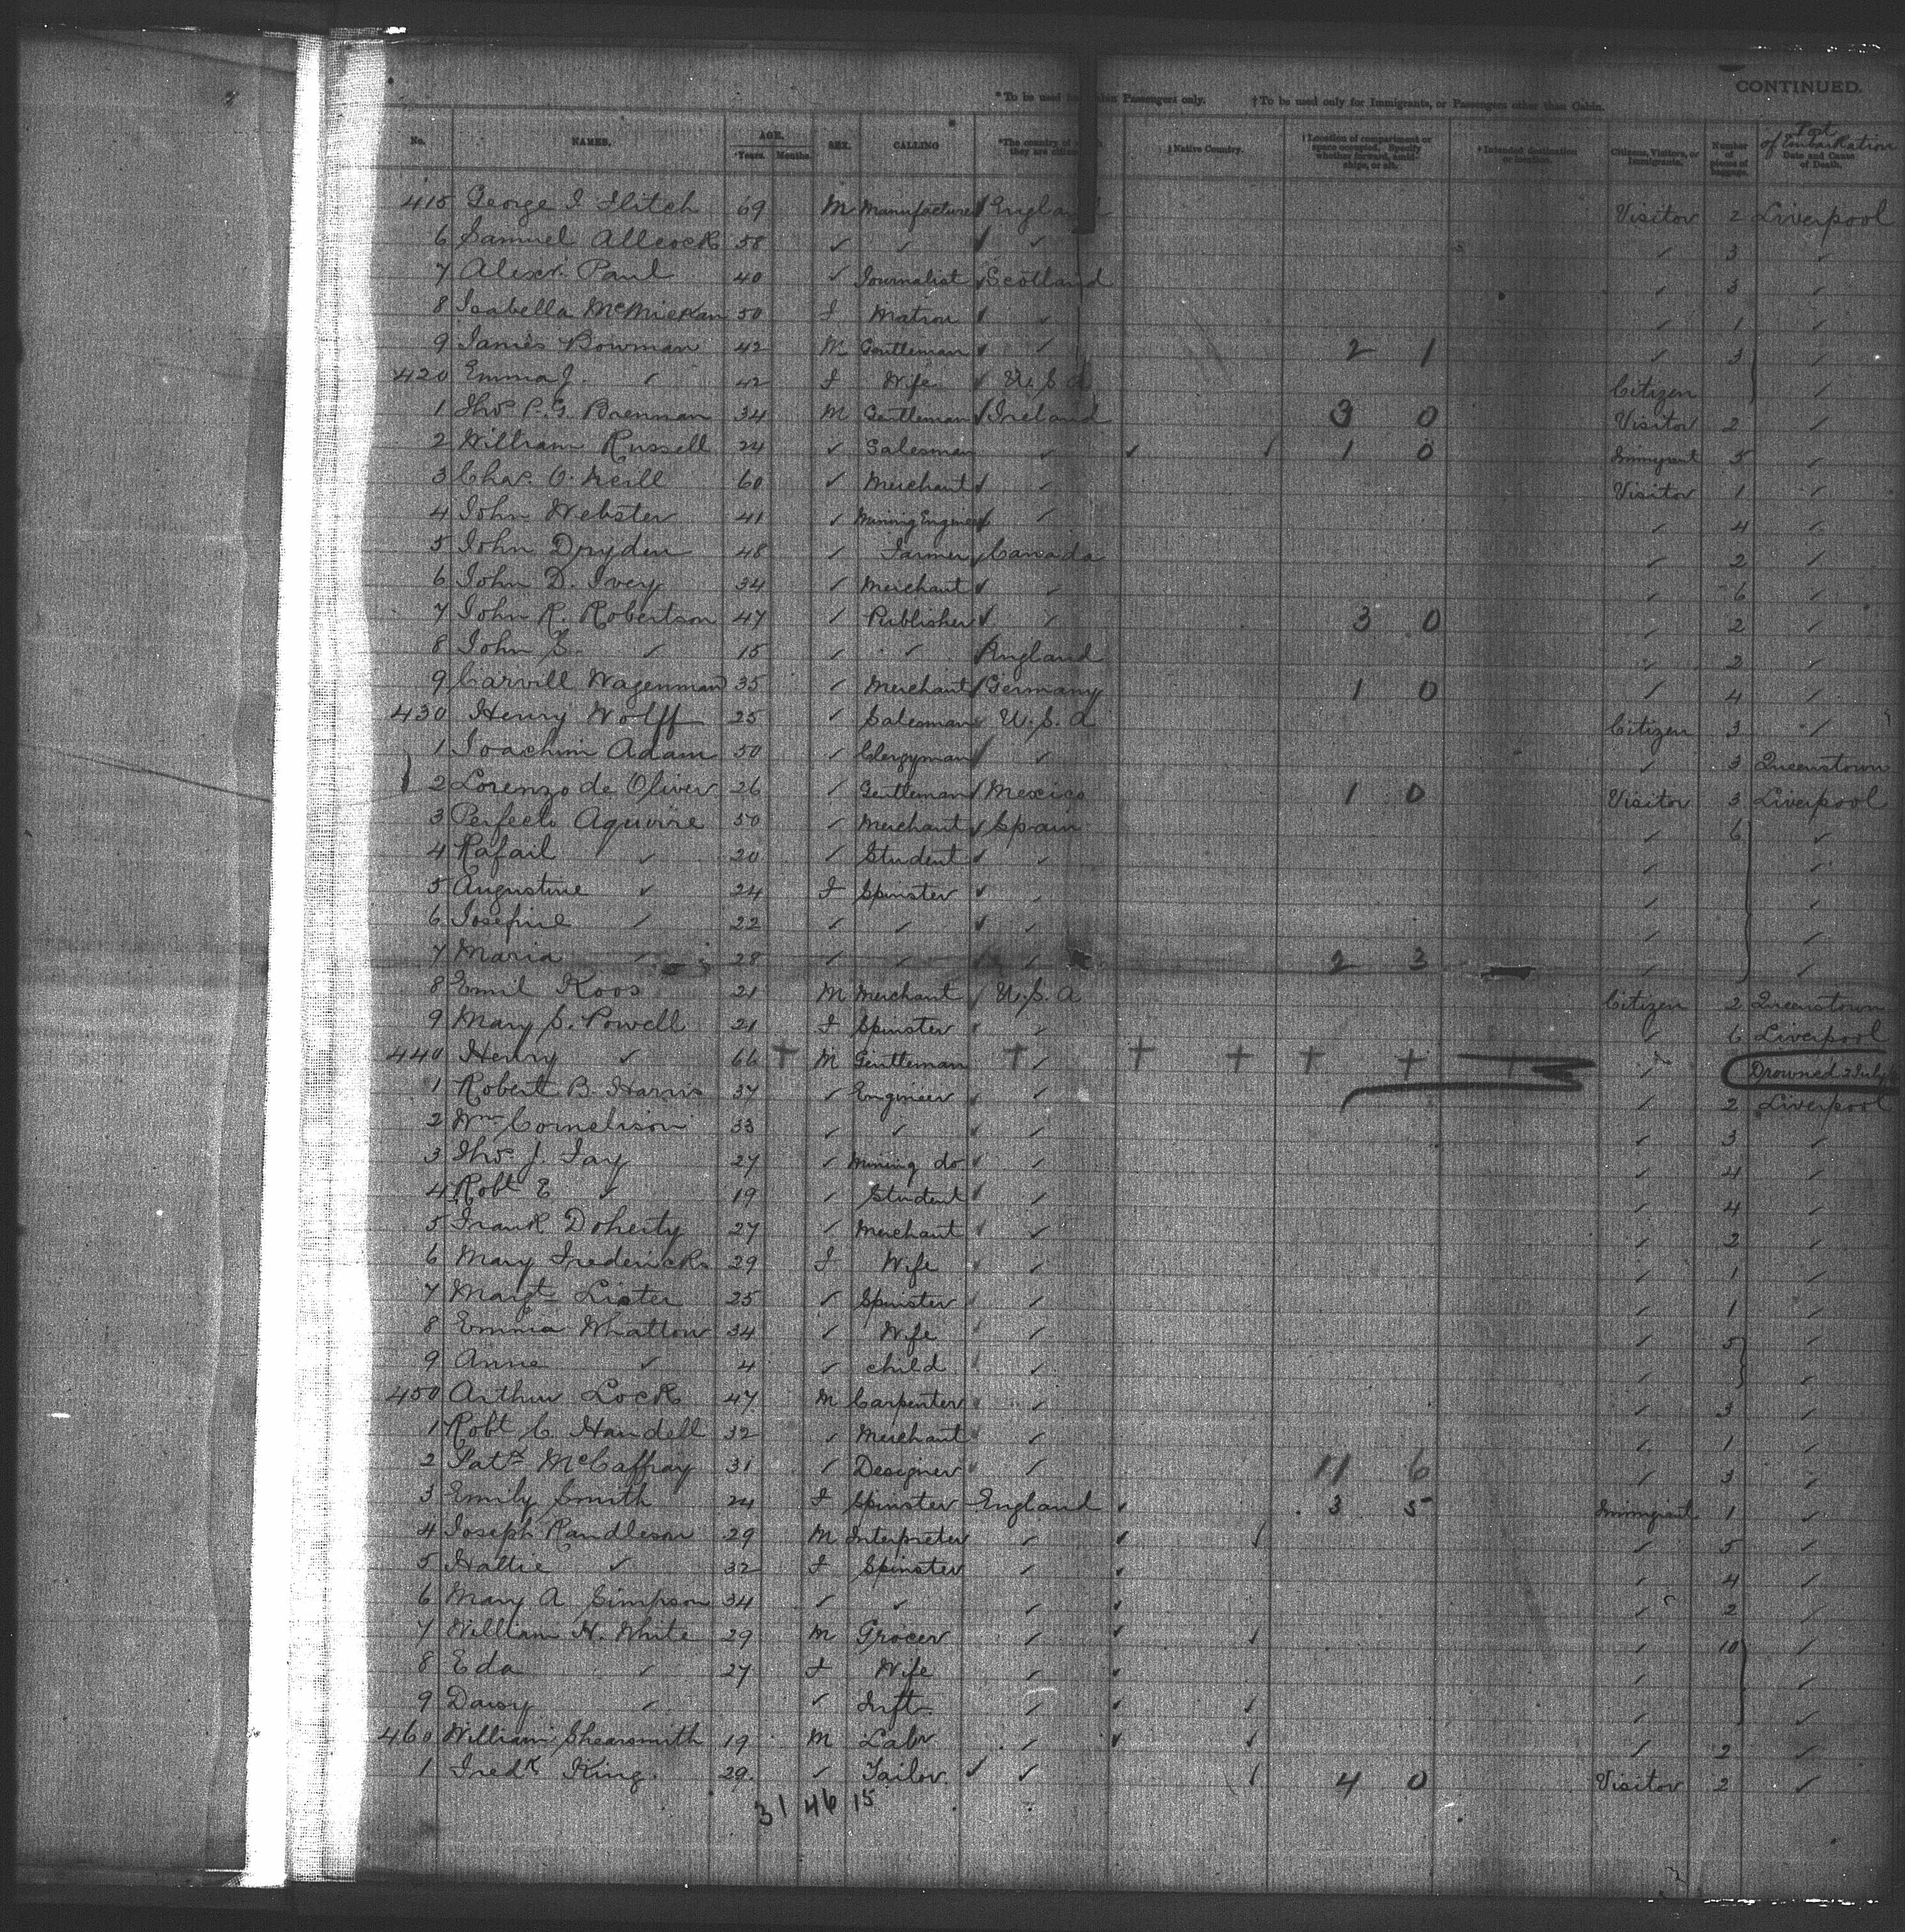 CONTINUED.
*To be used Passengers only. †To be used only for Immigrants, or Passengers other than Cabin.
No. NAMES. AGE. Years. Months. SEX. CALLING *The country of they are †Native Country. †Location of compartment or space occupied. Specify whether forward, amidships, or aft. †Intended destination or location. Citizens, Visitors, or Immigrants. Number of pieces of baggage. Port of Embarkation Date and Cause of Death.
415 George J. 69 M Manufacturer England Visitor 2 Liverpool
6 Samuel Allcock 58 ✓ ✓ ✓ ✓ 3 ✓
7 Alexr. Paul 40 ✓ Journalist Scotland ✓ 3 ✓
8 Isabella McMickan 50 F Matron ✓ ✓ 1 ✓
9 James Bowman 42 M Gentleman ✓ 2 1 ✓ 3 ✓
420 Emma J. ✓ 42 F Wife U.S.A Citizen ✓
1 Thos P.G. Brennan 34 M Gentleman Ireland 3 0 Visitor 2 ✓
2 William Russell 24 ✓ Salesman ✓ ✓ 1 0 Immigrant 5 ✓
3 Chas. O'Neill 60 ✓ Merchant ✓ Visitor 1 ✓
4 John Webster 41 ✓ Mining Engineer ✓ ✓ 4 ✓
5 John Dryden 48 ✓ Farmer Canada ✓ 2 ✓
6 John D. Ivey 34 ✓ Merchant ✓ ✓ 6 ✓
7 John R. Robertson 47 ✓ Publisher ✓ 3 0 ✓ 2 ✓
8 John S. ✓ 15 ✓ ✓ England ✓ 2 ✓
9 Carvill Wagenman 35 ✓ Merchant Germany 1 0 ✓ 4 ✓
430 Henry Wolff 25 ✓ Salesman U.S.A Citizen 3 ✓
1 Joachim Adam 50 ✓ Clergyman ✓ ✓ 3 Queenstown
2 Lorenzo de Oliver 26 ✓ Gentleman Mexico 1 0 Visitor 3 Liverpool
3 Perfecto Aguirre 50 ✓ Merchant Spain ✓ 6 ✓
4 Rafail ✓ 20 ✓ Student ✓ ✓ ✓
5 Augustine ✓ 24 F Spinster ✓ ✓ ✓
6 Josefine ✓ 22 ✓ ✓ ✓ ✓ ✓
7 Maria ✓ 28 ✓ ✓ ✓ 2 3 ✓ ✓
8 Emil Koos 21 M Merchant U.S.A Citizen 2 Queenstown
9 Mary S. Powell 21 F Spinster ✓ ✓ 6 Liverpool
440 Henry ✓ 66 + M Gentleman + ✓ + + + + + ✓ Drowned 2 July
1 Robert B. Harris 37 ✓ Engineer ✓ ✓ 2 Liverpool
2 Wm Cornelison 33 ✓ ✓ ✓ ✓ 3 ✓
3 Thos J. Fay 27 ✓ Mining do ✓ ✓ 4 ✓
4 Robt E ✓ 19 ✓ Student ✓ ✓ 4 ✓
5 Frank Doherty 27 ✓ Merchant ✓ ✓ 2 ✓
6 Mary Fredericks 29 F Wife ✓ ✓ 1 ✓
7 Margt Lister 25 ✓ Spinster ✓ ✓ 1 ✓
8 Emma Whatton 34 ✓ Wife ✓ ✓ 5 ✓
9 Anne ✓ 4 ✓ child ✓ ✓ ✓
450 Arthur Lock 47 M Carpenter ✓ ✓ 3 ✓
1 Robt C. Handell 32 ✓ Merchant ✓ ✓ 1 ✓
2 Patk McCaffray 31 ✓ Designer ✓ 11 6 ✓ 3 ✓
3 Emily Smith 24 F Spinster England ✓ 3 5 Immigrant 1 ✓
4 Joseph Randleson 29 M Interpreter ✓ ✓ ✓ 5 ✓
5 Hattie ✓ 32 F Spinster ✓ ✓ ✓ 4 ✓
6 Mary A Simpson 34 ✓ ✓ ✓ ✓ ✓ 2 ✓
7 William H. White 29 M Grocer ✓ ✓ ✓ 10 ✓
8 Eda ✓ 27 F Wife ✓ ✓ ✓ ✓
9 Daisy ✓ ✓ Inft. ✓ ✓ ✓ ✓
460 William Shearsmith 19 M Labr ✓ ✓ ✓ 2 ✓
1 Fredk King. 29. ✓ Tailor ✓ ✓ 4 0 Visitor 2 ✓
31 46 15